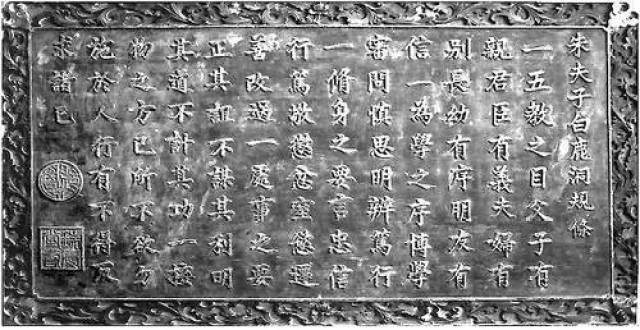 朱夫子白鹿洞規條
一五教之目父子有
親君臣有義夫婦有
別長幼有序朋友有
信一為學之序博學
審問慎思明辨篤行
一脩身之要言忠信
行篤敬懲忿窒慾遷
善改過一處事之要
正其誼不謀其利明
其道不計其功一接
物之方已所不欲勿
施於人行有不得反
求諸已